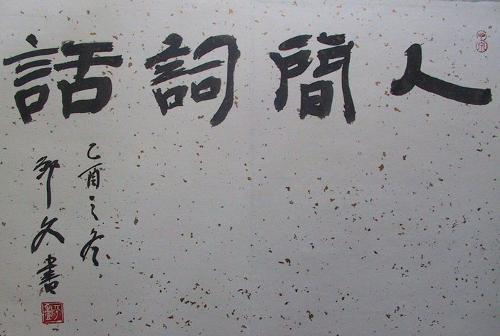 人間詞話
乙酉之冬
邹久書